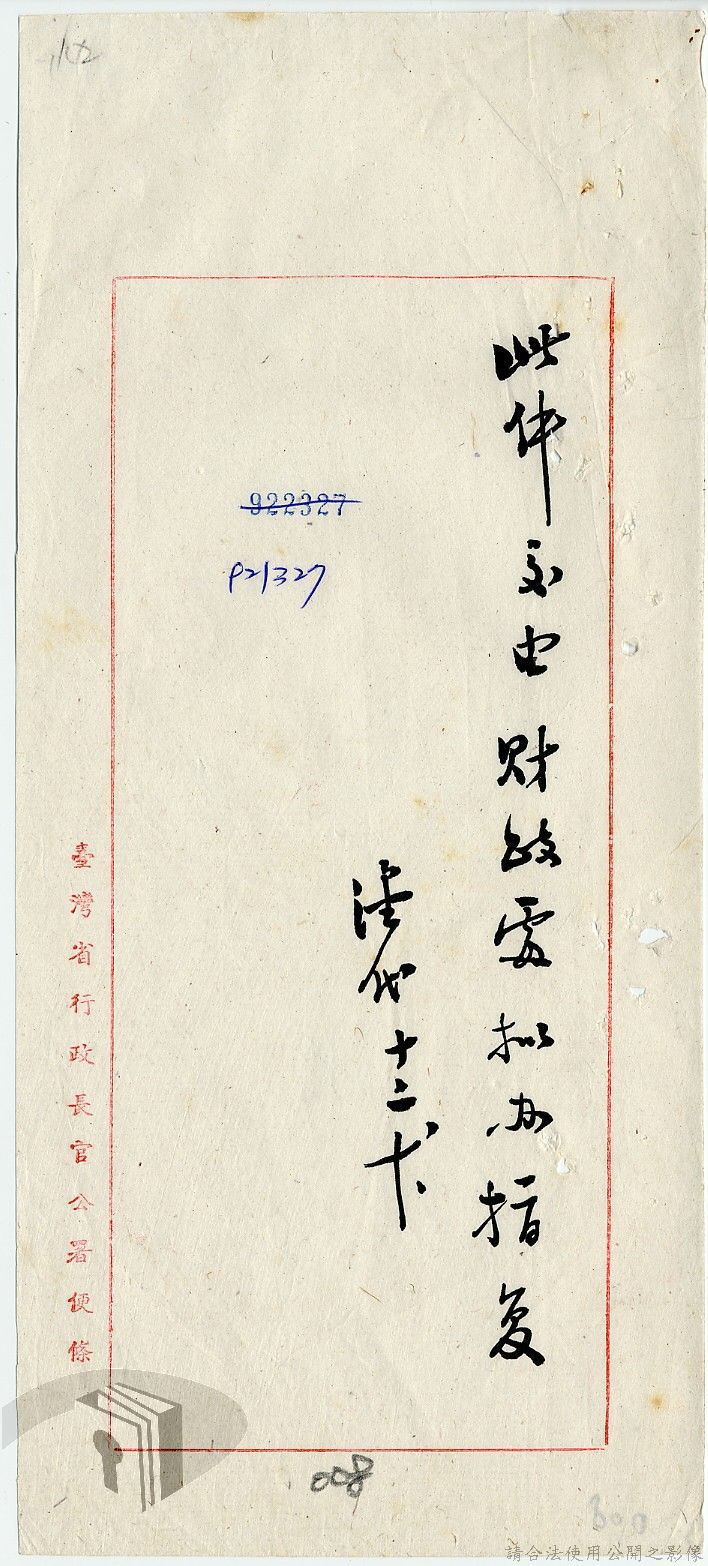 此件交由財政處拟办指复
代十二
922327
P21327
臺灣省行政長官公署便條
008
300
請合法使用公開之影像